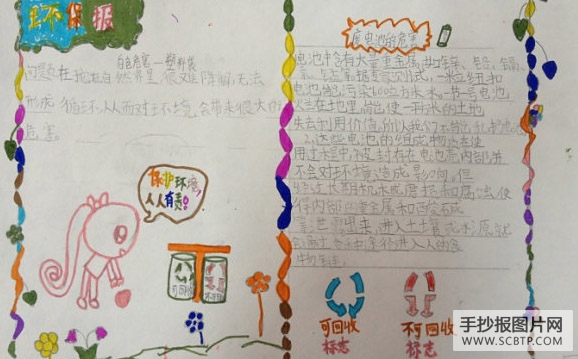 环保报
白色危害一塑料袋
问题在于它在自然界里很难降解,无法
形成循环从而对环境会带来很大的
危害。
保护环境,
人人有责!
可回收
不可回收
废电池的危害
电池中含有大量重金属
一粒纽扣
电池能污染600立方米水,一节一号电池
烂在地里,能使一平方米的土地
失去利用价值,所以我们不
这些电池的组成物质在使
用过程中,被封存在电池壳内部,并
不会对环境造成影响。但
经过长期机械磨损和腐蚀,使
得内部的重金属和酸碱
进入土壤或水源,就
进入人的食
物链。
可回收
标志
不可回收
标志
手抄报图片网
WWW.SCBTP.COM